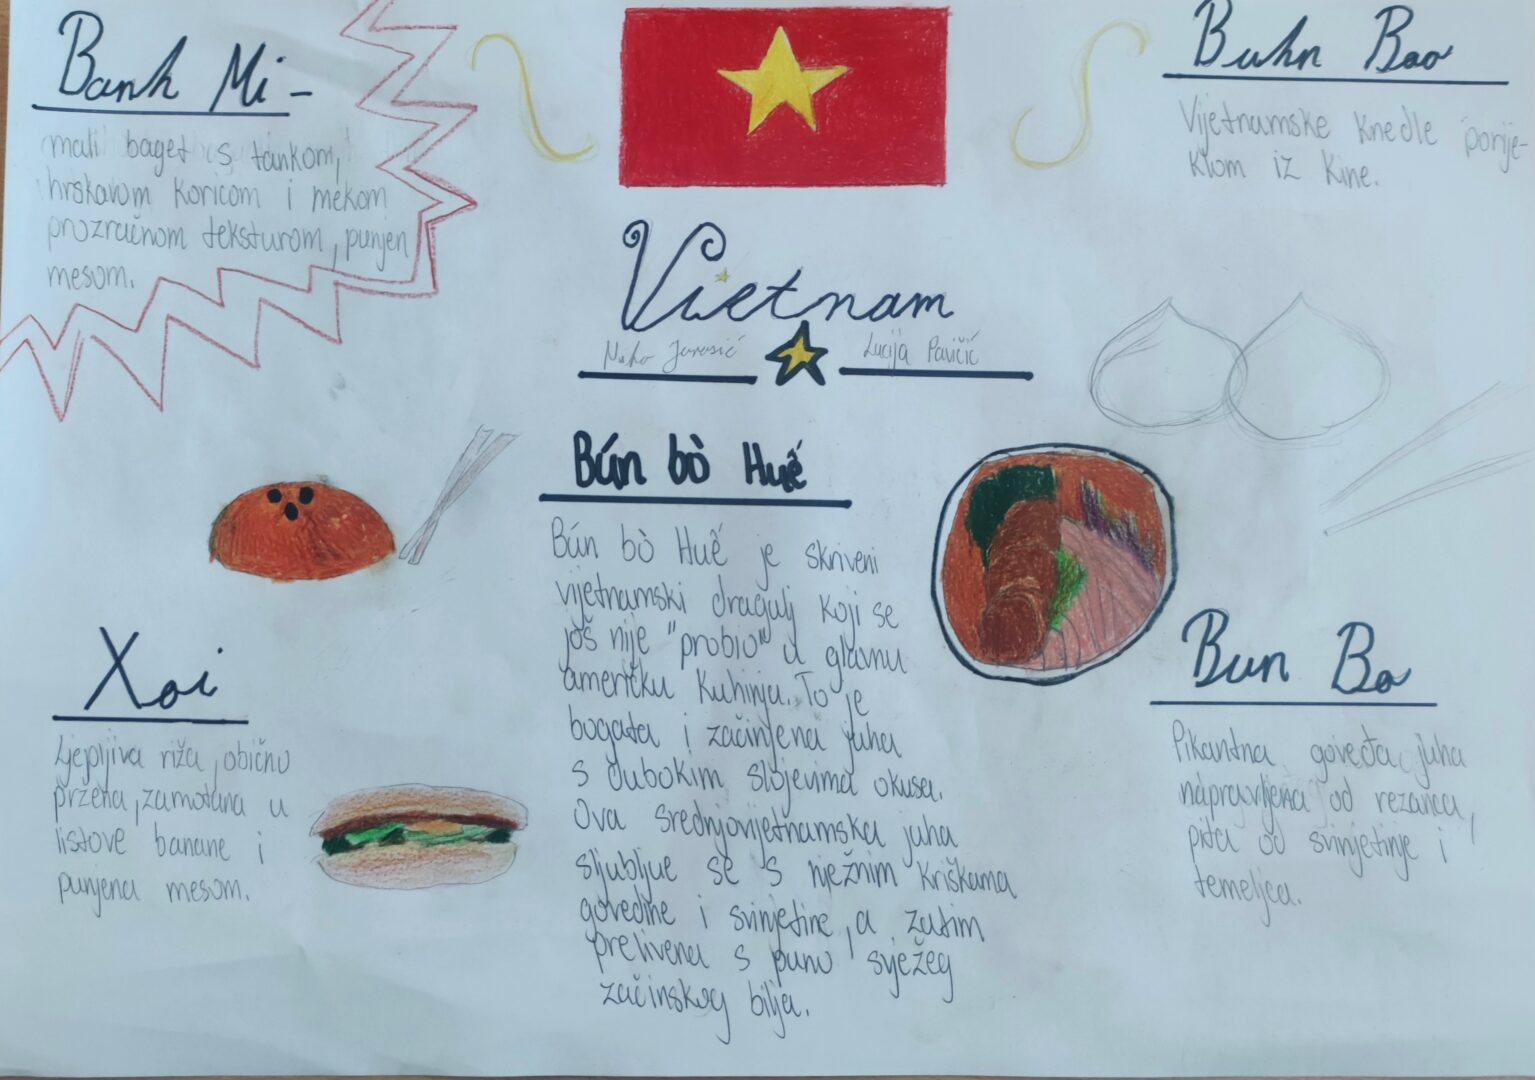 Banh Mi -
mali baget s tankom,
hrskavom koricom i mekom
prozračnom teksturom, punjen
mesom.
Buhn Bao
Vijetnamske knedle porije-
klom iz Kine.
Vietnam
Lucija Pavičić
Bún bò Huế
Bún bò Huế je skriveni
vijetnamski dragulj koji se
još nije "probio" u glavnu
američku kuhinju. To je
bogata i začinjena juha
s dubokim slojevima okusa.
Ova srednjovijetnamska juha
sljubljuje se s nježnim kriškama
govedine i svinjetine, a zatim
prelivena s puno svježeg
začinskog bilja.
Xoi
Ljepljiva riža, obično
pržena, zamotana u
listove banane i
punjena mesom.
Bun Bo
Pikantna goveđa juha
napravljena od rezanca,
pita od svinjetinje i
temeljca.